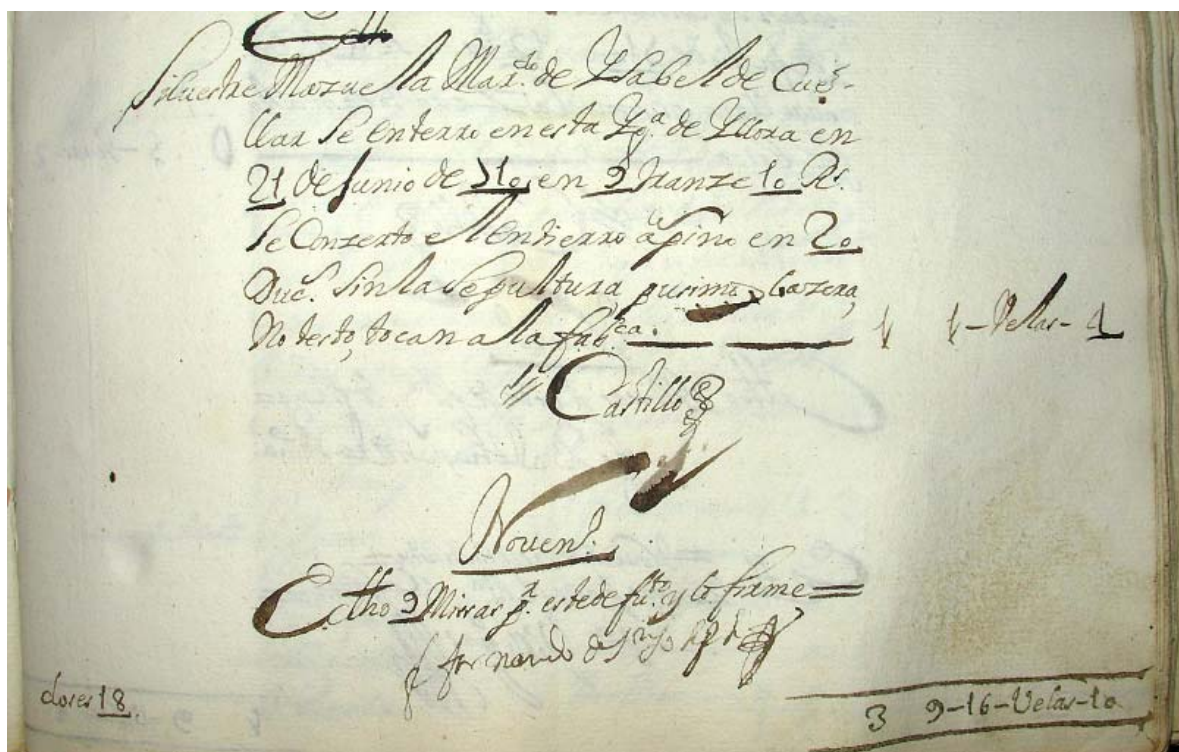 Silvestre Mazuella Mar.do de Ysabel de Cue-
llar Se enterro en esta Yg.a de Yllora en
21 de Junio de 710, en 9 tranze 10 Rs.
Se Conzerto el Entierro en 20
Duc.s Sin la Sepultura,
No testo, tocan a la fab.ca. 1 1-Velas-4
Castillo
Noven.o
E dho 9 Missas p.a este defu.to y lo firme =
fernando
3 9-16-Velas-10
18